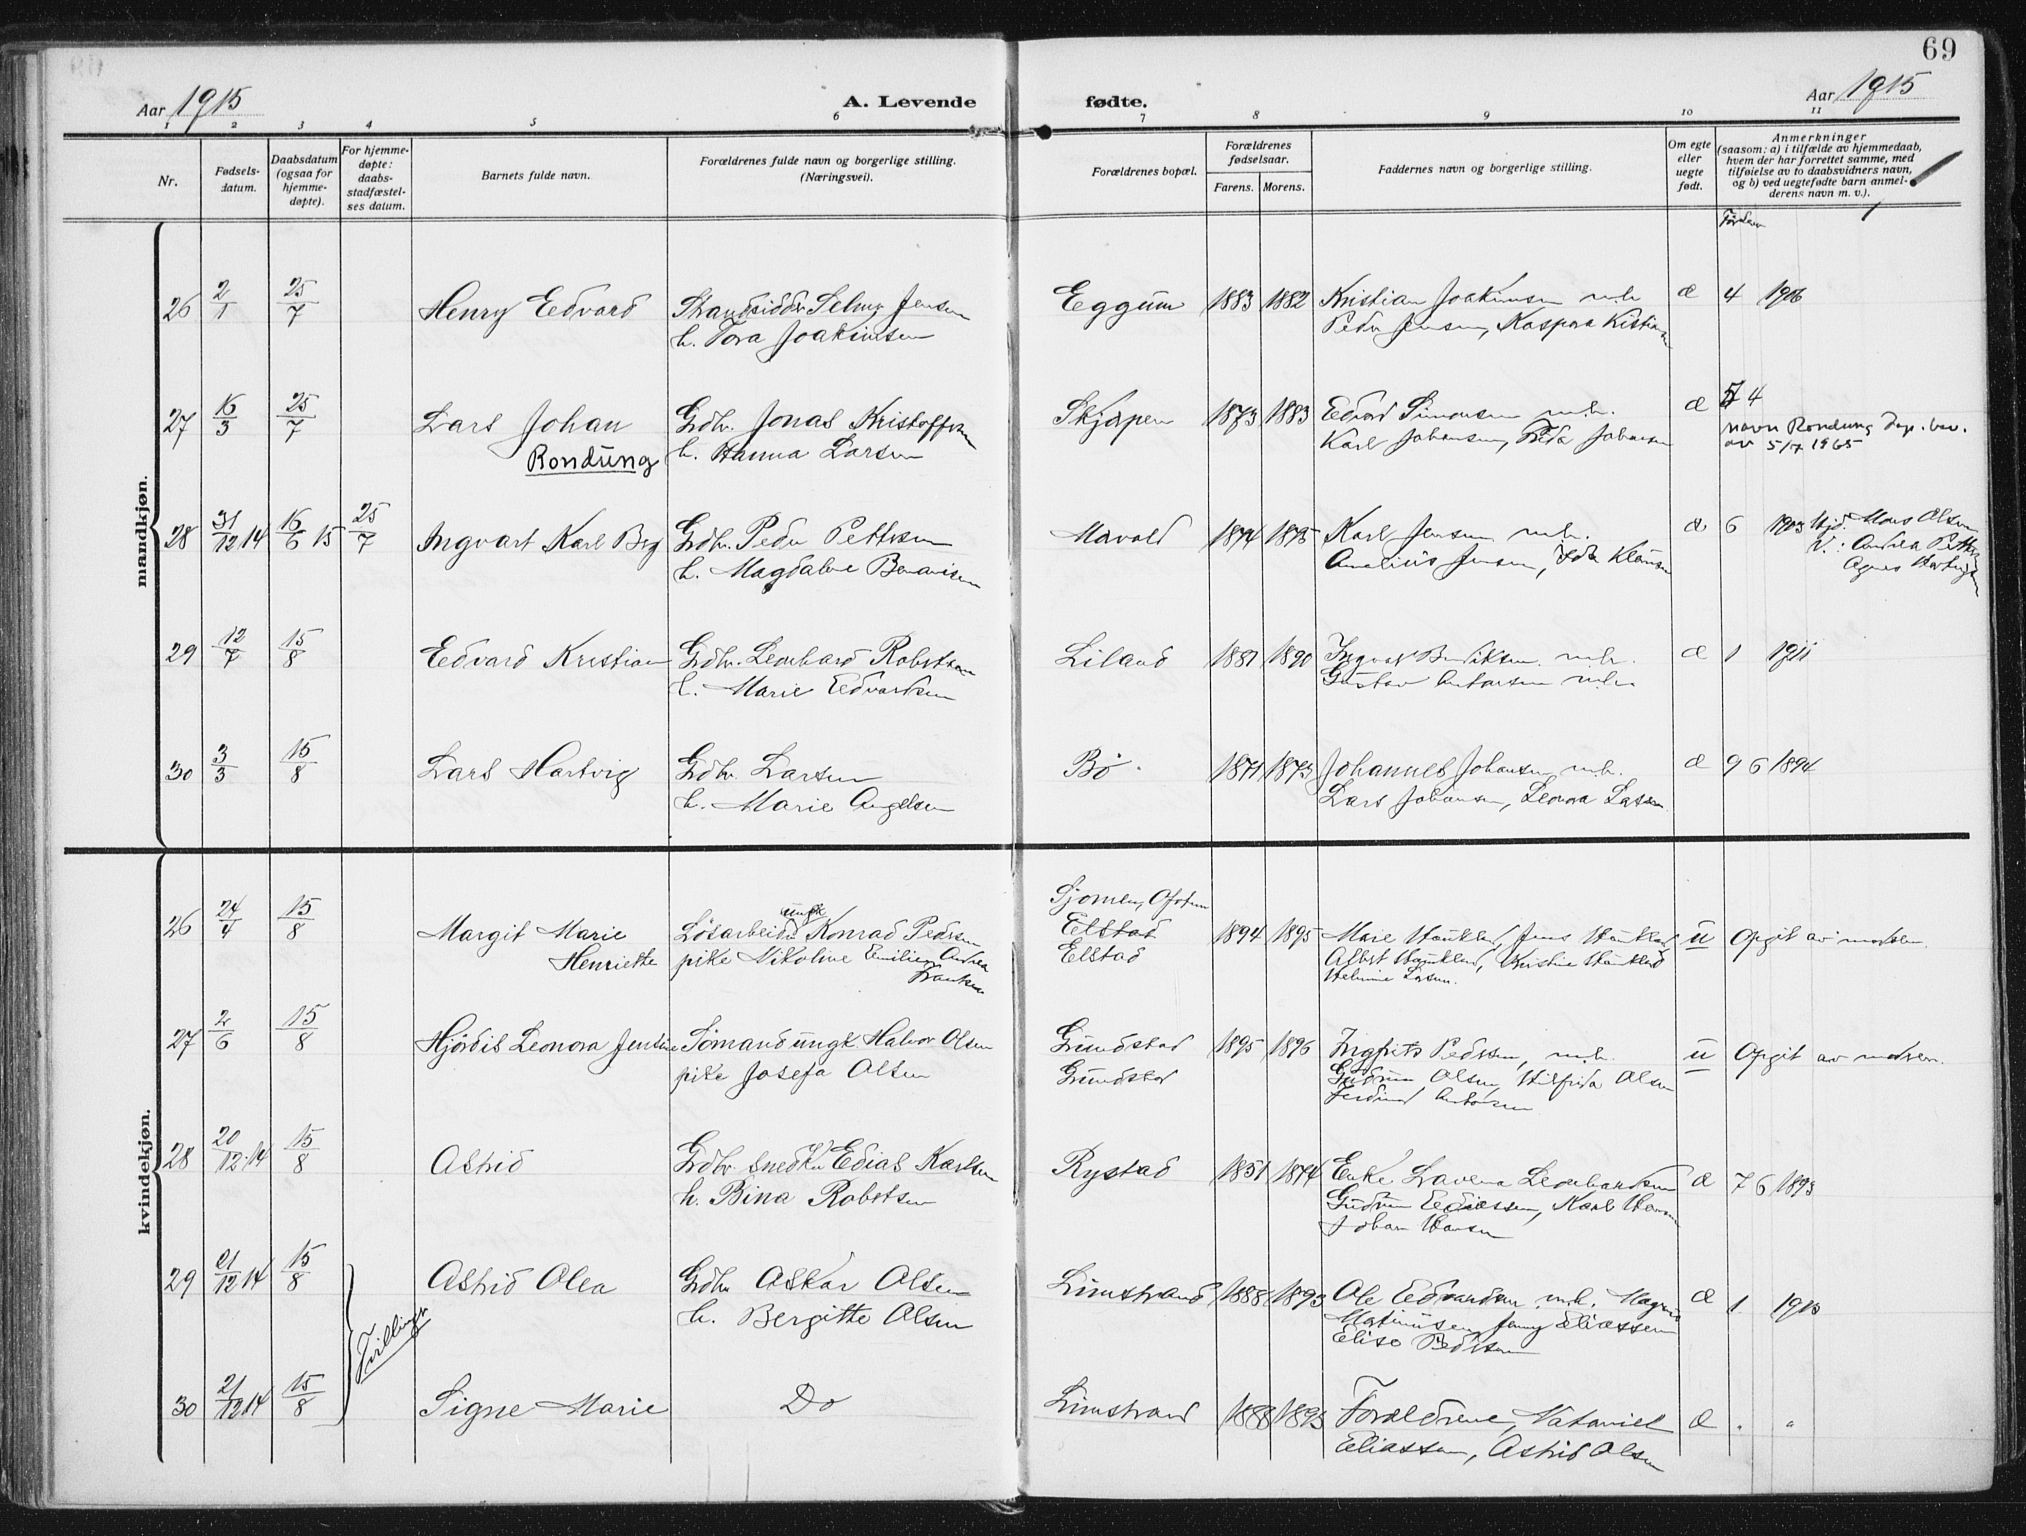 69
Aar 1915 A. Levende fødte. Aar 1915
1 2 3 4 5 6 7 8 9 10 11
Nr.
Fødsels-
datum.
Daabsdatum
(ogsaa for
hjemme-
døpte).
For hjemme-
døpte:
daabs-
stadfæstel-
ses datum.
Barnets fulde navn.
Forældrenes fulde navn og borgerlige stilling.
(Næringsvei).
Forældrenes bopæl.
Forældrenes
fødselsaar.
Farens. Morens.
Faddernes navn og borgerlige stilling.
Om egte
eller
uegte
født.
Anmerkninger
(saasom: a) i tilfælde av hjemmedaab,
hvem der har forrettet samme, med
tilføielse av to daabsvidners navn,
og b) ved uegtefødte barn anmel-
derens navn m. v.).
mandkjøn.
26 2/1 25/7 Henry Edvard Strandsidder Selmer Jensen Eggum 1883 1882 Kristian Joakimsen m.h. æ 4
h. Tora Joakimsen Peder Jensen, Kaspara
27 16/3 25/7 Lars Johan Grdbr. Jonas Kristoffersen Skjærpen 1873 1883 Edvard Simonsen m.h. æ 4
Rondung h. Hanna Larsen Karl Johansen, Frida Johansen
navn Rondung Jap. bev.
av 5/7 1965
28 31/12 14 16/6 15 25/7 Ingvart Karl Berg Grdbr. Peder Pettersen Mavold 1874 1875 Karl Jensen m.h. æ 6 1903 Hjd. Mons Olsen
h. Magdalene Amelius Jensen, V.: Andrea
Agnes
29 12/7 15/8 Edvard Kristian Grdbr. Leonhard Robertsen Liland 1881 1890 Ingvart m.h. æ 1 1911
h. Marie Edvardsen Gustav m.h.
30 3/3 15/8 Lars Hartvig Grdbr. Larsen Bø. 1871 1873 Johannes Johansen m.h. æ 9 6 1894
h. Marie Angelsen Lars Johansen, Leonora Larsen
kvindekjøn.
26 24/4 15/8 Margit Marie Løsarbeider ungk. Konrad Pedersen Sjomen, Ofoten 1894 1895 Marie u Opgit av moderen.
Henriette pike Nikoline Emilie Andrea Elstad Albert
Elstad
27 2/6 15/8 Hjørdis Leonora Jensine Sømand ungk. Halvor Olsen Grundstad 1895 1896 Ingfrits Pedersen, m.h. u Opgit av moderen.
pike Josefa Olsen Grundstad Gudrun Olsen, Hilfrida Olsen
28 20/12 14 15/8 Astrid Grdbr. snedker Edias Karlsen Rystad 1851 1874 Enke Lavena Leonhardsen æ 7 6 1893
h. Bina Robertsen Gudrun Ediassen, Karl Hansen
Johan Hansen
29 21/12 14 15/8 Astrid Olea Grdbr. Oskar Olsen Limstrand 1888 1893 Ole Edvardsen m.h. æ 1.
h. Bergitte Olsen Matinusen, Jenny Eliassen
Elise Pedersen
Tvillinger
30 21/12 14 15/8 Signe Marie Do Limstrand 1888 1893 Forældrene, Nataniel æ " "
Eliassen, Astrid Olsen